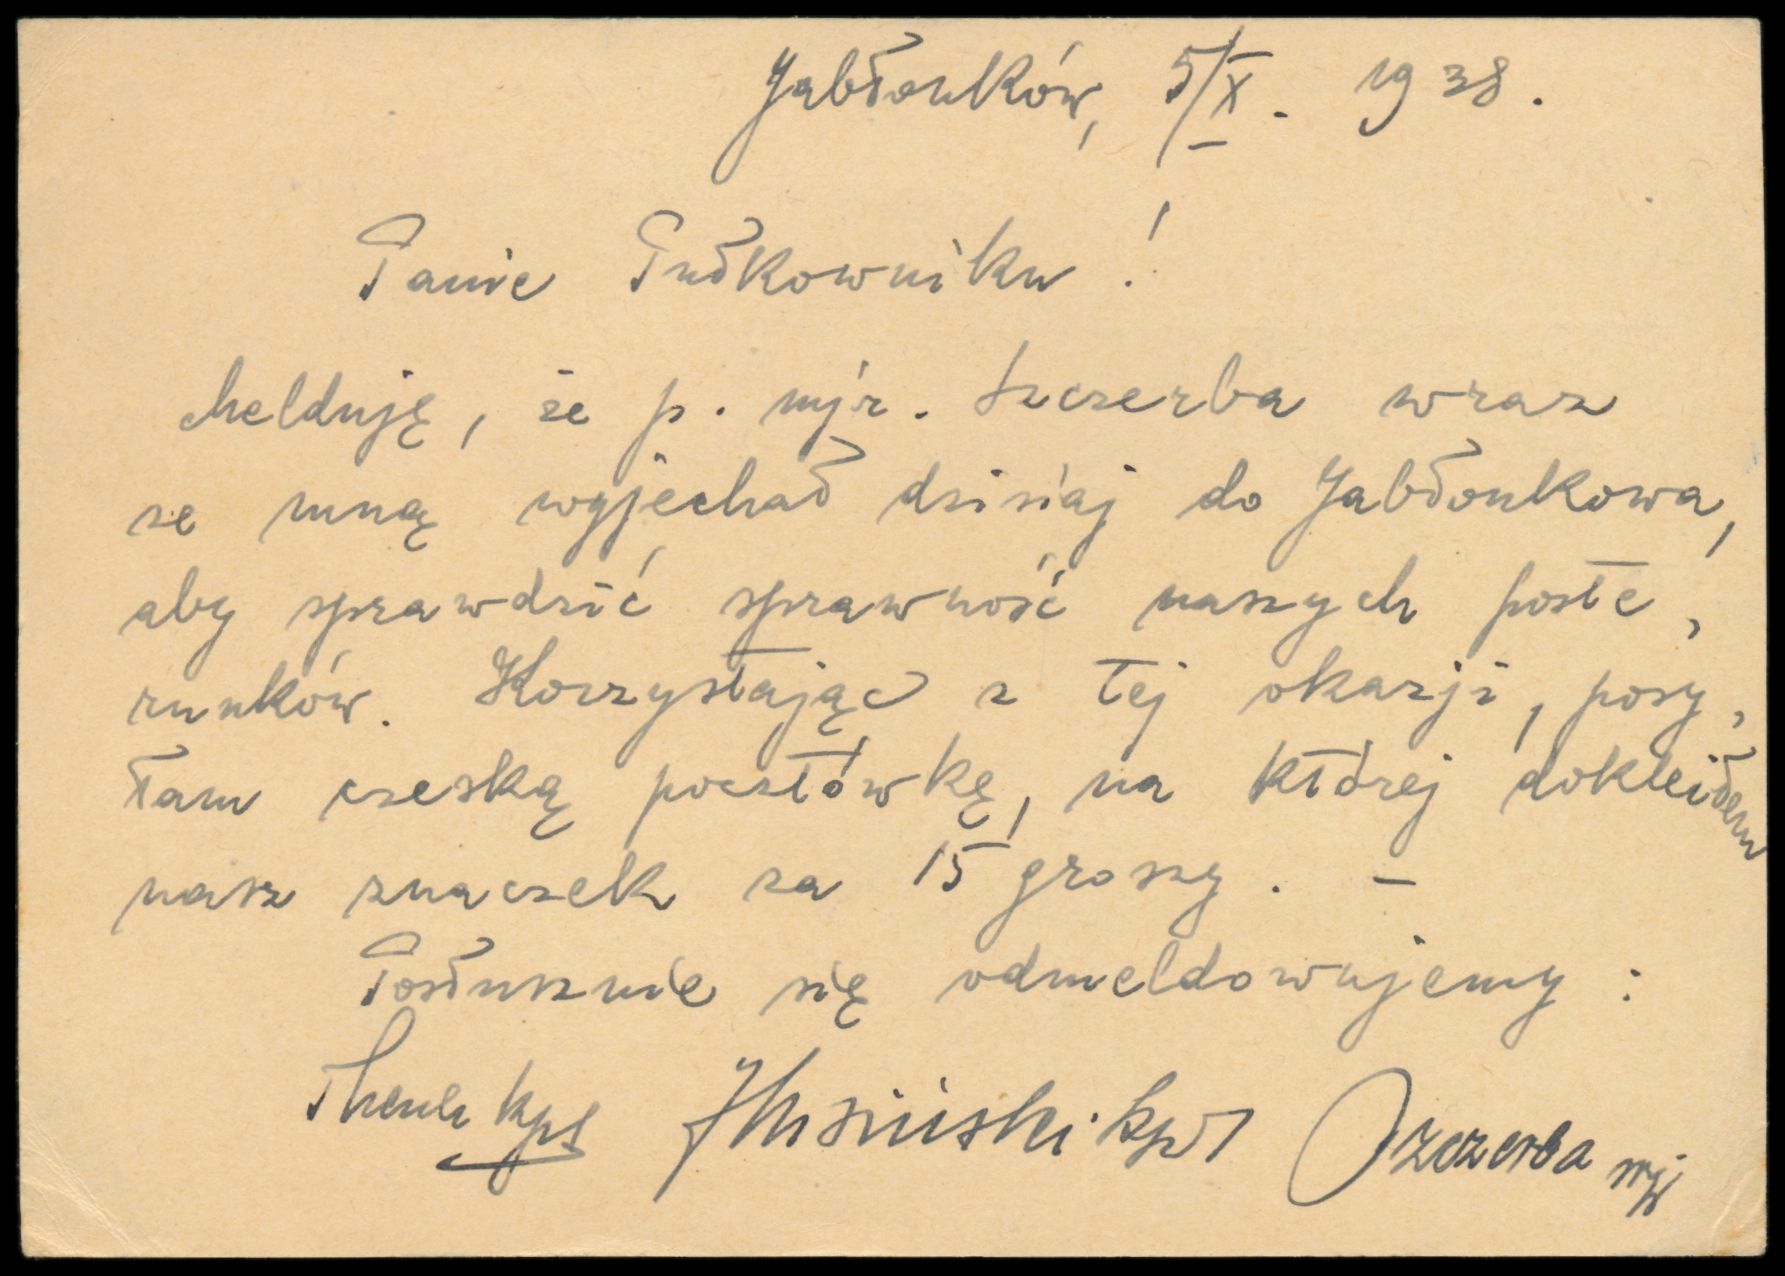 Jabłonków, 5/X. 1938.
Panie Pułkowniku!
Melduję, że p. mjr. Szczerba wraz
ze mną wyjechał dzisiaj do Jabłonkowa,
aby sprawdzić sprawność naszych poste,
runków. Korzystając z tej okazji, posy,
łam czeską pocztówkę, na której dokleiłem
nasz znaczek za 15 groszy. –
Posłusznie się odmeldowujemy:
kpt kpt Szczerba mjr